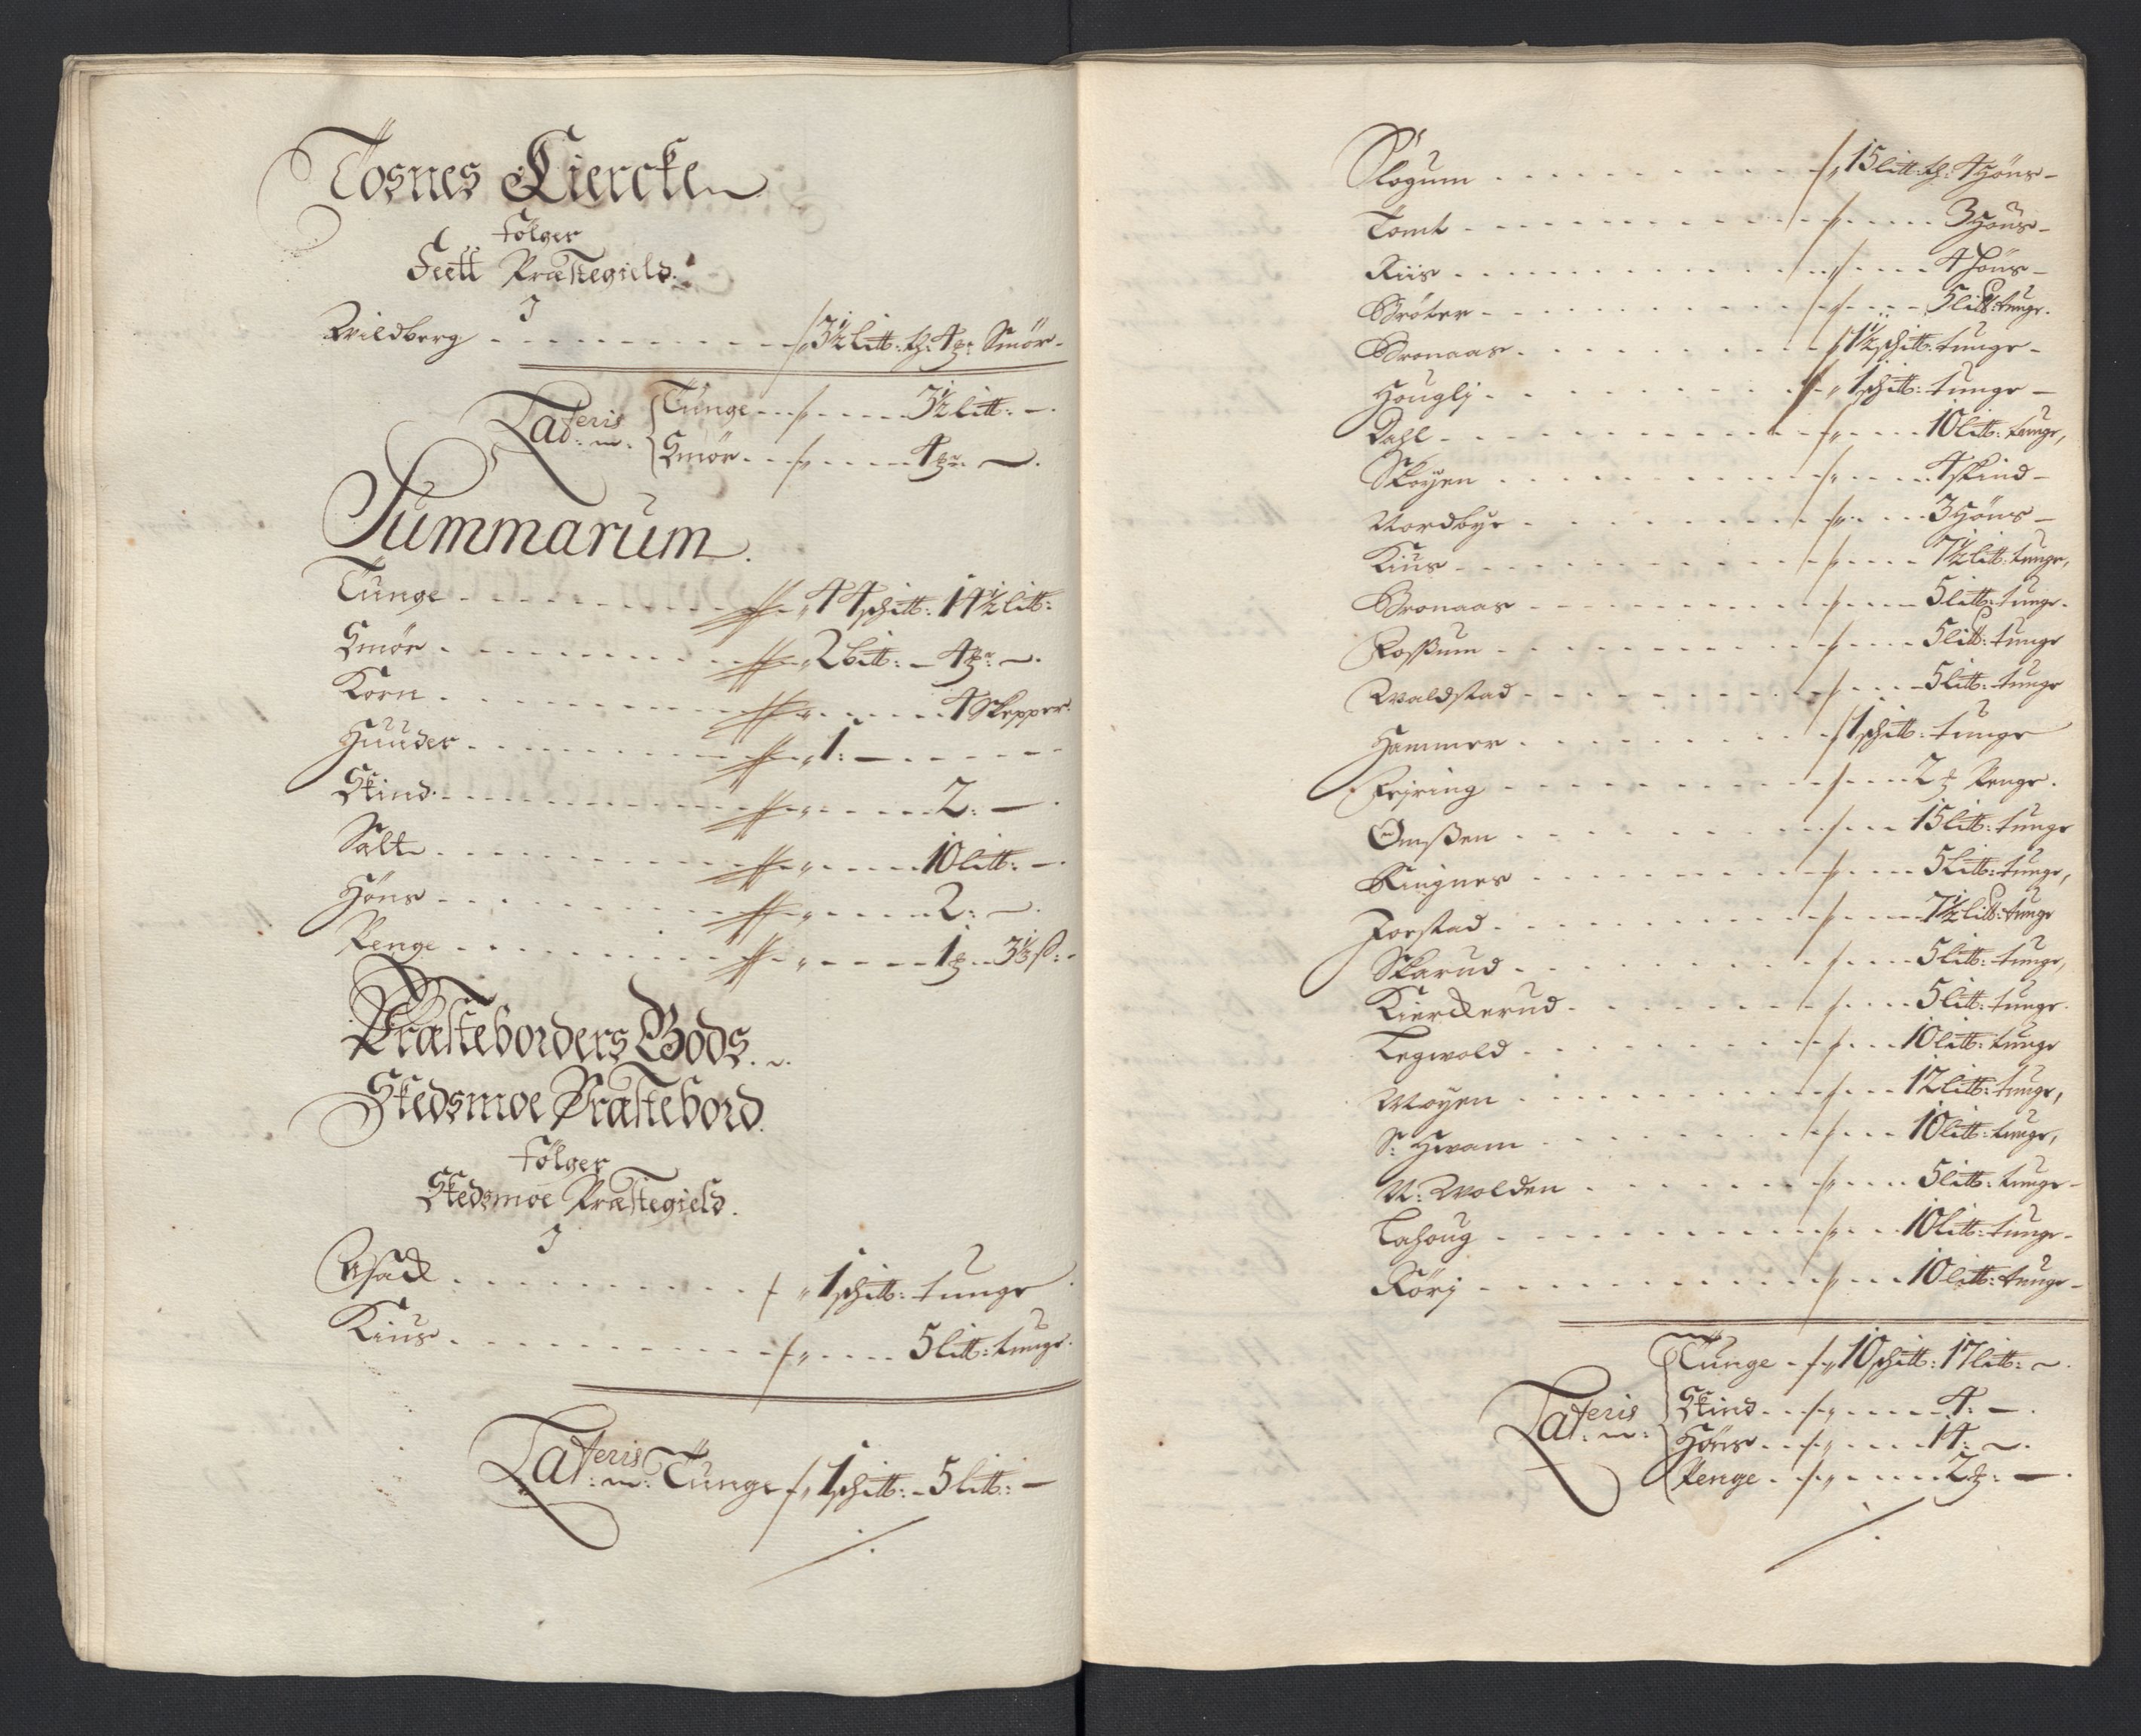 Tosnes Kiercke
Følger
Feett Præstegield.
I
Wildberg - - - 3½ litt: th: 4 ℔r Smør -
Lateris Tunge - - - 3½ litt: -
Smør - - - 4 ℔r -
Summarum
Tunge - - - 44 schitt: 14½ litt:
Smør - - - 2 bitt: - 4 ℔r -
Korn - - - 4 Skepper
Huuder - - - 1: -
Skind - - - 2: -
Salt - - - 10 litt: -
Høns - - - 2: -
Penge - - - 1 - 3½ ß: -
Præsteborders Gods
Skedsmoe Præstebord
Følger
Skedsmoe Præstegield.
I
Asack - - - 1 schitt: tunge
Kius - - - 5 litt: tunge
Lateris Tunge 1 schitt: - 5 litt: -
Slogum - - - 15 litt: th: 4 Høns -
Tomt - - - 3 Høns -
Riis - - - 4 Høns -
Brøter - - - 5 litt: tunge
Bronaas - - - 1½ schitt: tunge -
Hougli - - - 1 schitt: tunge -
Dahl - - - 10 litt: tunge,
Skøyen - - - 4 skind -
Nordbye - - - 3 Høns -
Kius - - - 7½ litt: tunge,
Bronaas - - - 5 litt: tunge
Rossum - - - 5 litt: tunge
Waldstad - - - 5 litt: tunge
Hammer - - - 1 schitt: tunge
Fejring - - - 2 Penge
Omssen - - - 15 litt: tunge
Ringnes - - - 5 litt: tunge,
Jorstad - - - 7½ litt: tunge
Skarud - - - 5 litt: tunge,
Kierckerud - - - 5 litt: tunge
Legwold - - - 10 litt: tunge
Møyen - - - 12 litt: tunge,
S: Hwam - - - 10 litt: tunge,
N: Wolden - - - 5 litt: tunge -
Lahoug - - - 10 litt: tunge -
Rørj - - - 10 litt: tunge -
Lateris Tunge - 10 schitt: 17 litt: -
Skind - - - 4: -
Høns - - - 14: -
Penge - - - 2: -